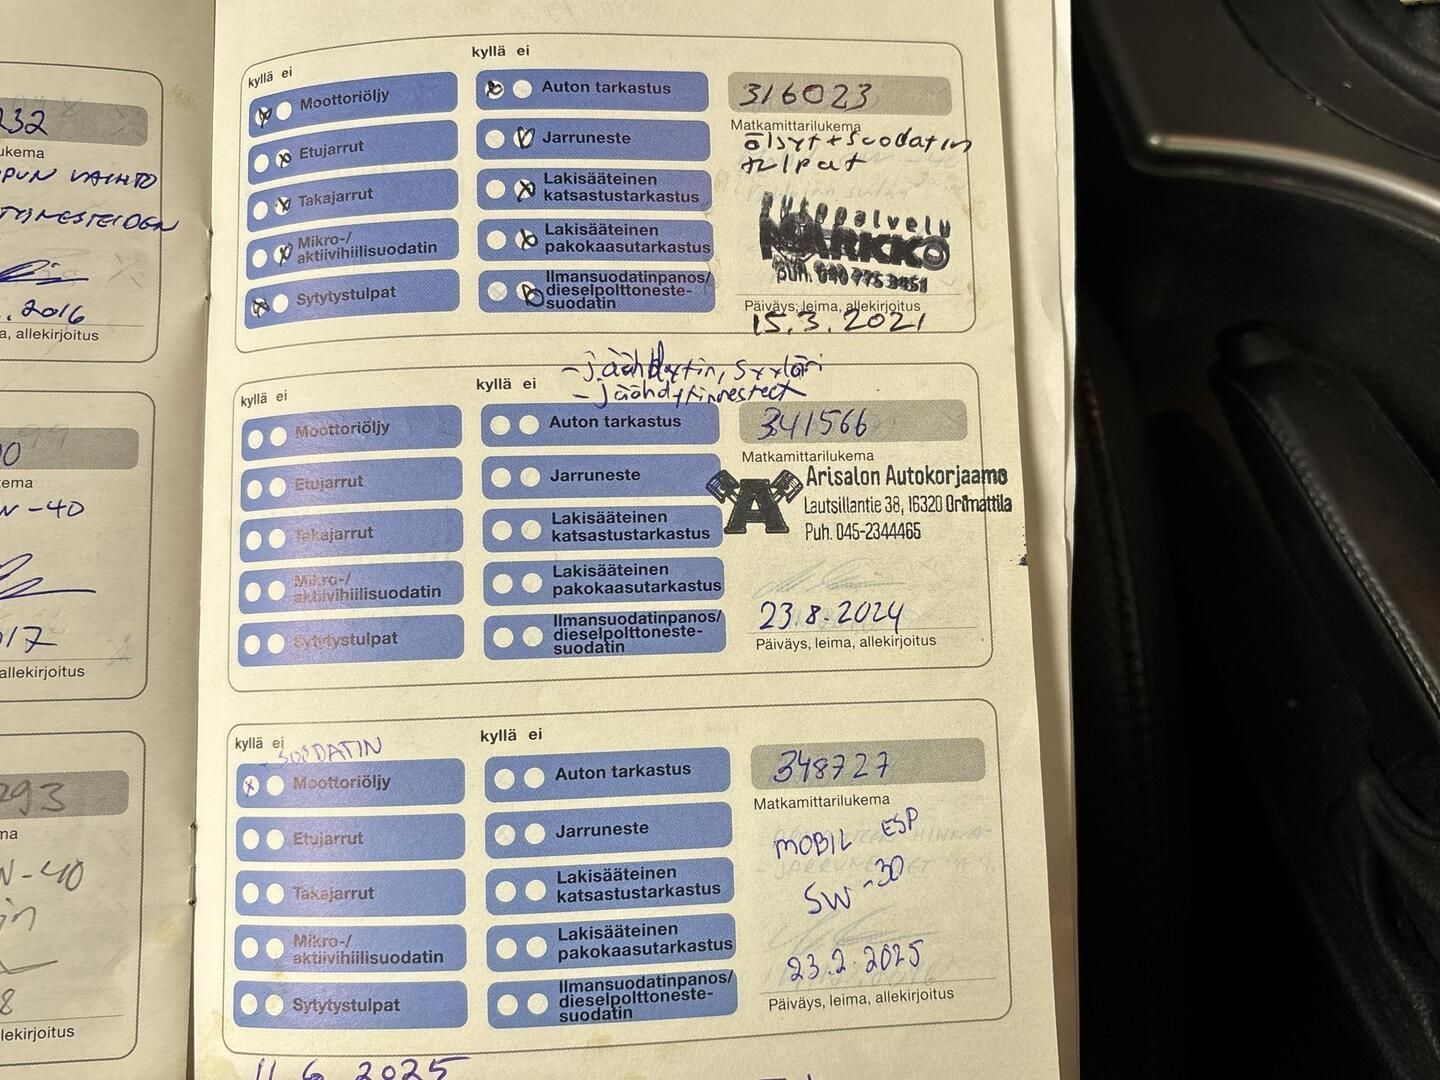 232
ukema
PUN VAIHTO
2016
a, allekirjoitus
0
ema
W-40
017
allekirjoitus
293
ma
W-40
in
8
llekirjoitus
kyllä ei
Moottoriöljy
Etujarrut
Takajarrut
Mikro-/
aktiivihiilisuodatin
Sytytystulpat
kyllä ei
Auton tarkastus
Jarruneste
Lakisääteinen
katsastustarkastus
Lakisääteinen
pakokaasutarkastus
Ilmansuodatinpanos/
dieselpolttoneste-
suodatin
316023
Matkamittarilukema
öljyt+suodatin
tulpat
MARKKO
puh. 040 775 3451
Päiväys, leima, allekirjoitus
15.3.2021
- jäähdytin, syyläri
- jäähdytinnesteet
kyllä ei
Moottoriöljy
Etujarrut
Takajarrut
Mikro-/
aktiivihiilisuodatin
Sytytystulpat
kyllä ei
Auton tarkastus
Jarruneste
Lakisääteinen
katsastustarkastus
Lakisääteinen
pakokaasutarkastus
Ilmansuodatinpanos/
dieselpolttoneste-
suodatin
341566
Matkamittarilukema
A
Arisalon Autokorjaamo
Lautsillantie 38, 16320 Orimattila
Puh. 045-2344465
23.8.2024
Päiväys, leima, allekirjoitus
kyllä ei
SUODATIN
Moottoriöljy
Etujarrut
Takajarrut
Mikro-/
aktiivihiilisuodatin
Sytytystulpat
kyllä ei
Auton tarkastus
Jarruneste
Lakisääteinen
katsastustarkastus
Lakisääteinen
pakokaasutarkastus
Ilmansuodatinpanos/
dieselpolttoneste-
suodatin
348727
Matkamittarilukema
MOBIL ESP
5W-30
23.2.2025
Päiväys, leima, allekirjoitus
11.6.2025